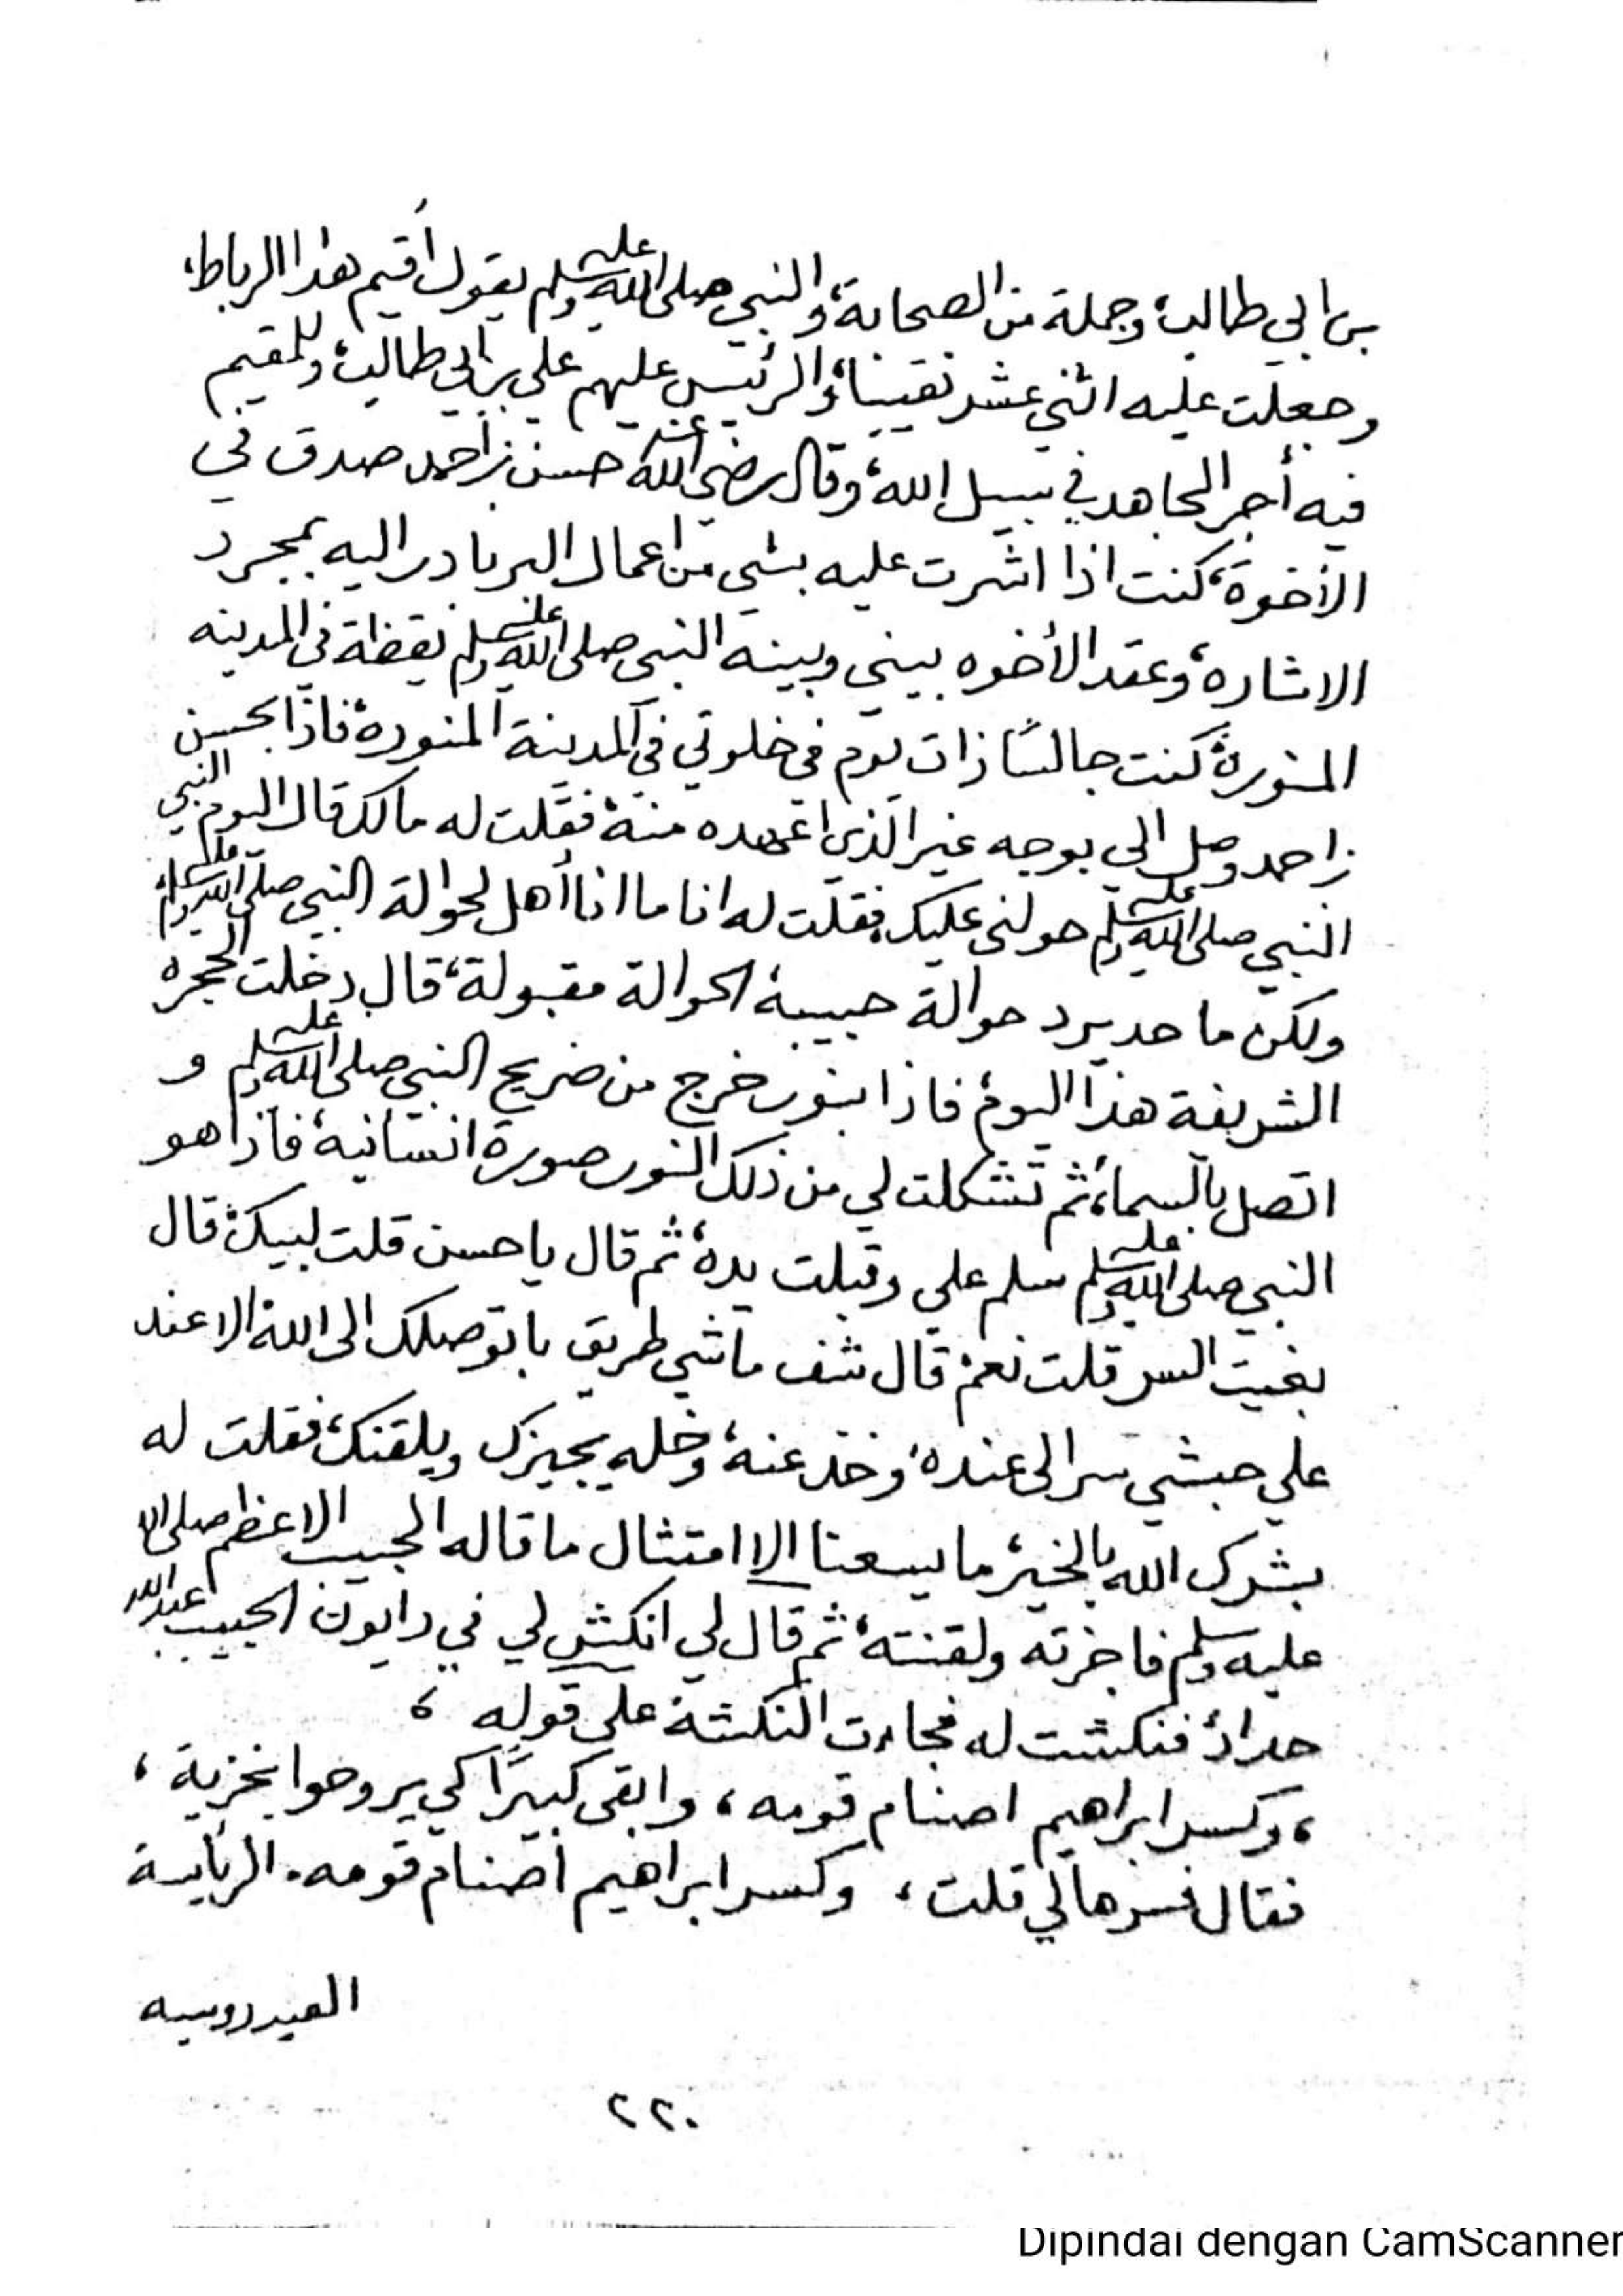 بن ابي طالب، وجملة من الصحابة، والنبي صلى الله عليه وسلم يقول أقيم هذا الرباط،
وجعلت عليه اثني عشر نقيبا، والرئيس عليهم علي بن ابي طالب، وللمقيم
فيه أجر المجاهد في سبيل الله، وقال رضي الله عنه حسن بن احمد صدق في
الأخوة، كنت اذا اشرت عليه بشي من اعمال البر بادر اليه بمجرد
الاشاره، وعقد الأخوه بيني وبينه النبي صلى الله عليه وسلم يقظة في المدينه
المنورة، كنت جالسًا ذات يوم في خلوتي في المدينة المنورة، فاذا بحسن
بن احمد وصل الي بوجه غير الذي اعهده منه، فقلت له مالك قال اليوم النبي
النبي صلى الله عليه وسلم حولني عليك، فقلت له انا ما انا أهل لحوالة النبي صلى الله عليه وسلم،
ولكن ما حد يرد حوالة حبيبه، الحوالة مقبولة، قال دخلت الحجره
الشريفة هذا اليوم، فاذا بنور خرج من ضريح النبي صلى الله عليه وسلم و
اتصل بالسماء، ثم تشكلت لي من ذلك النور صورة انسانيه، فاذا هو
النبي صلى الله عليه وسلم سلم علي وقبلت يده، ثم قال يا حسن قلت لبيك، قال
بغيت السر قلت نعم، قال شف ماشي طريق باتوصلك الى الله، الا عند
علي حبشي سر الى عنده، وخذ عنه، وخله يجيزك ويلقنك، فقلت له
بشرك الله بالخير، ما يسعنا الا امتثال ما قاله الحبيب الاعظم صلى الله
عليه وسلم فاجزته ولقنته، ثم قال لي انكش لي في دايوان الحبيب عبدالله
حداد، فنكشت له فجاءت النكشة على قوله ،
، وكسر ابراهيم اصنام قومه ، وابقى كبيرًا كي يروحوا بخزية ،
فقال فسرها لي قلت ، وكسر ابراهيم أصنام قومه . الريأسة
العيدروسيه
٢٢٠
Dipindai dengan CamScanner